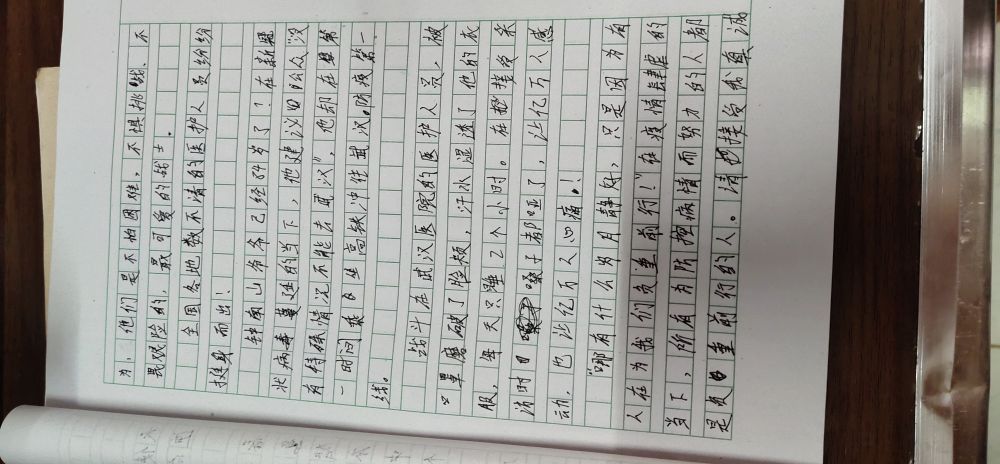 为，他们是不怕困难，不惧挑战、不
畏艰险的，最可爱的战士．
全国各地数不清的医护人员纷纷
挺身而出！
钟南山爷爷已经84岁了！在新冠
状病毒蔓延的当下，他建议公众“没
有特殊情况不能去武汉”，他却在第
一时间乘坐高铁冲往武汉防疫第一
线。
战斗在武汉医院的医护人员，被
口罩磨破了脸颊，汗水湿透了他的衣
服，每天只睡2个小时。在接受采
访时，嗓子都哑了，让亿万人感
动，也让亿万人心痛！
“哪有什么岁月静好，只是因为有
人在为我们负重前行！”在疫情肆虐的
当下，所有为防控病情而努力的人都
是负重前行的人。请接受我真诚